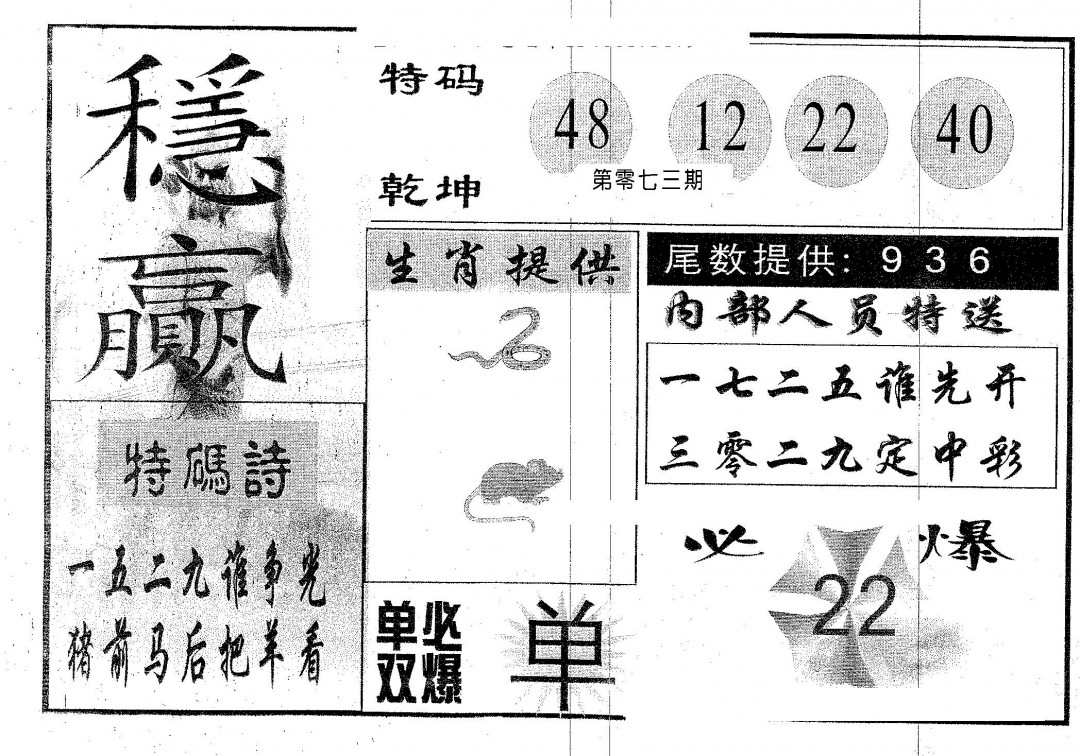 穩
贏
特码
48 12 22 40
第零七三期
乾坤
生肖提供
尾数提供: 9 3 6
内部人员特送
一七二五谁先开
三零二九定中彩
特碼詩
一五二九谁争光
猪前马后把羊看
必爆
22
单双
必爆
单